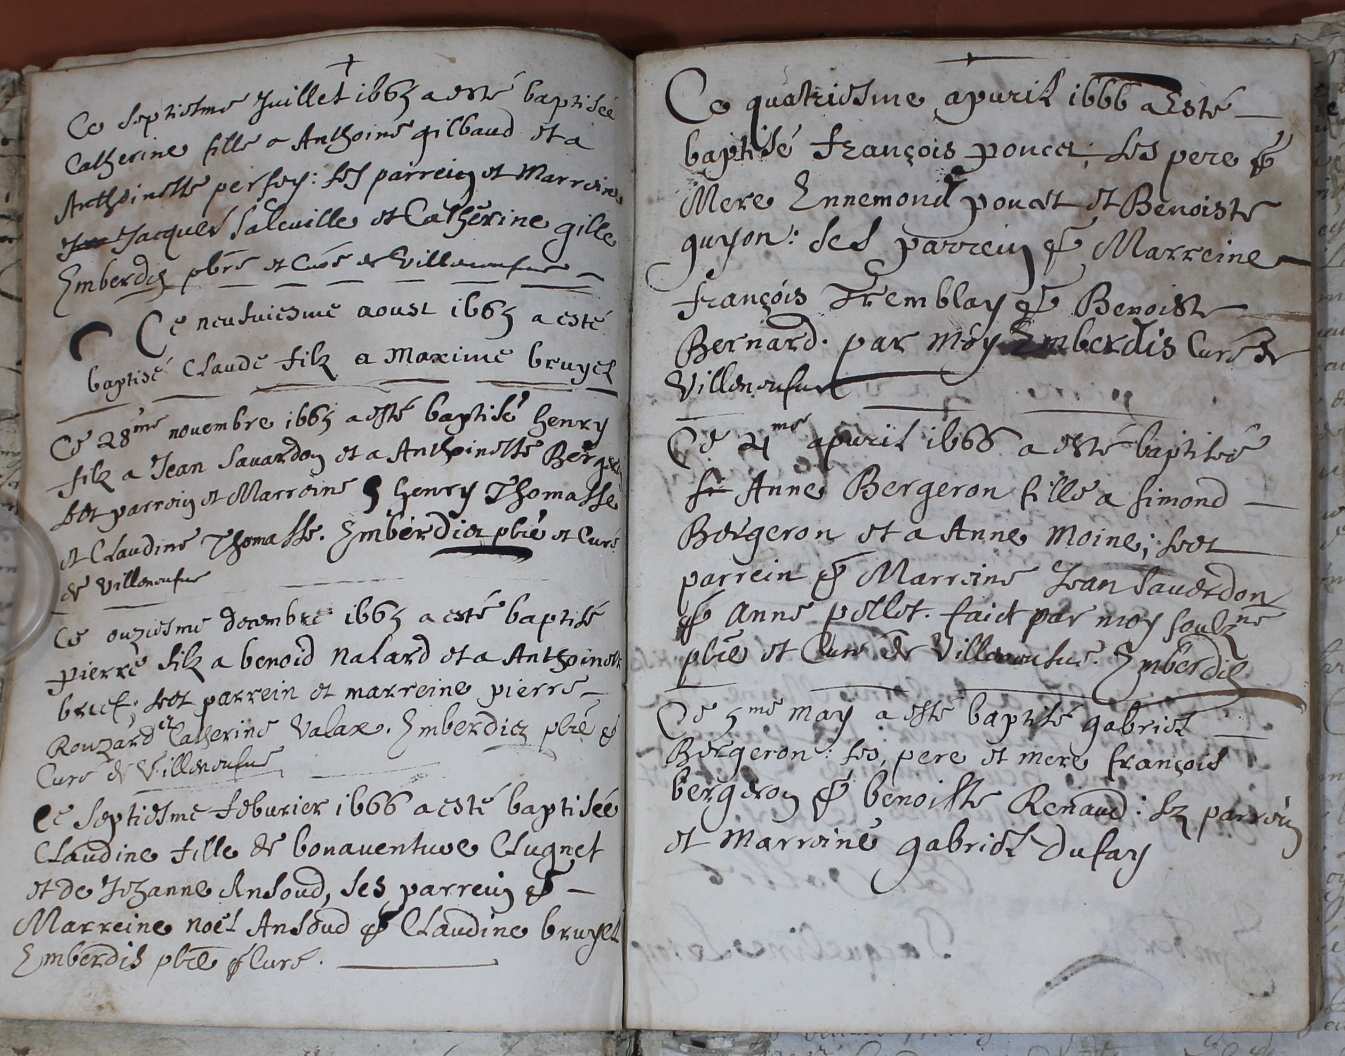 Ce septiesme Juillet 1665 a esté baptisée
Catherine fille a Anthoine gilbaud et a
Anthoinette : ses parrein et Marreine
Jacques Saleuille et Catherine gille
Emberdis pbre et Curé de Villeneufue
Ce neufuiesme aoust 1665 a esté
baptisé Claude filz a Maxime bruyet
Ce 28me novembre 1665 a esté baptisé henry
filz a Jean Sauardon et a Anthoinette
set parrein et Marreine henry Thomasse
et Claudine Thomasse. Emberdis pbre et Curé
de Villeneufue
Ce onziesme decembre 1665 a esté baptisé
pierre filz a benoid nalard et a Anthoinette
brief; set parrein et marreine pierre
Rouzard et Catherine Valax. Emberdis pbre &
Curé de Villeneufue
Ce septiesme feburier 1666 a esté baptisée
Claudine fille de bonauenture Clugnet
et de Jezanne Ansoud, ses parrein &
Marreine noel Ansoud & Claudine bruyet
Emberdis pbre & Curé.
Ce quatriesme apuril 1666 a Esté
baptisé françois poucet; ses pere &
Mere Ennemond poucet et Benoiste
guyon: ses parrein & Marreine
françois Tremblay & Benoiste
Bernard. par moy Emberdis Curé de
Villeneufue
Ce me apuril 1666 a esté baptisée
Anne Bergeron fille a simond
Bergeron et a Anne moine; set
parrein & Marreine Jean Sauerdon
& Anne pollet. faict par moy soubzné
pbre et Curé de Villeneufue. Emberdis
Ce 5me may a esté baptisé gabriel
Bergeron: ses pere et mere françois
bergeron & benoiste Renaud: sz parrein
et marreine gabriel dufay